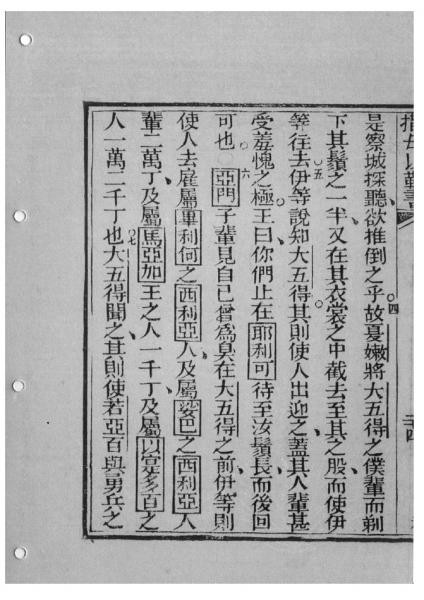 是察城探聽欲推倒之乎故夏嫩將大五得之僕輩而剃
四
下其鬚之一半又在其衣裳之中截去至其之股而使伊
等往去伊等說知大五得其則使人出迎之蓋其人輩甚
五
受羞愧之極王曰你們止在耶利可待至汝鬚長而後回
可也亞門子輩見自己曾爲臭在大五得之前伊等則
六
使人去雇屬里利何之西利亞人及屬娑巴之西利亞人
輩二萬丁及屬馬亞加王之人一千丁及屬以寔多百之
人一萬二千丁也大五得聞之其則使若亞百與勇兵之
七